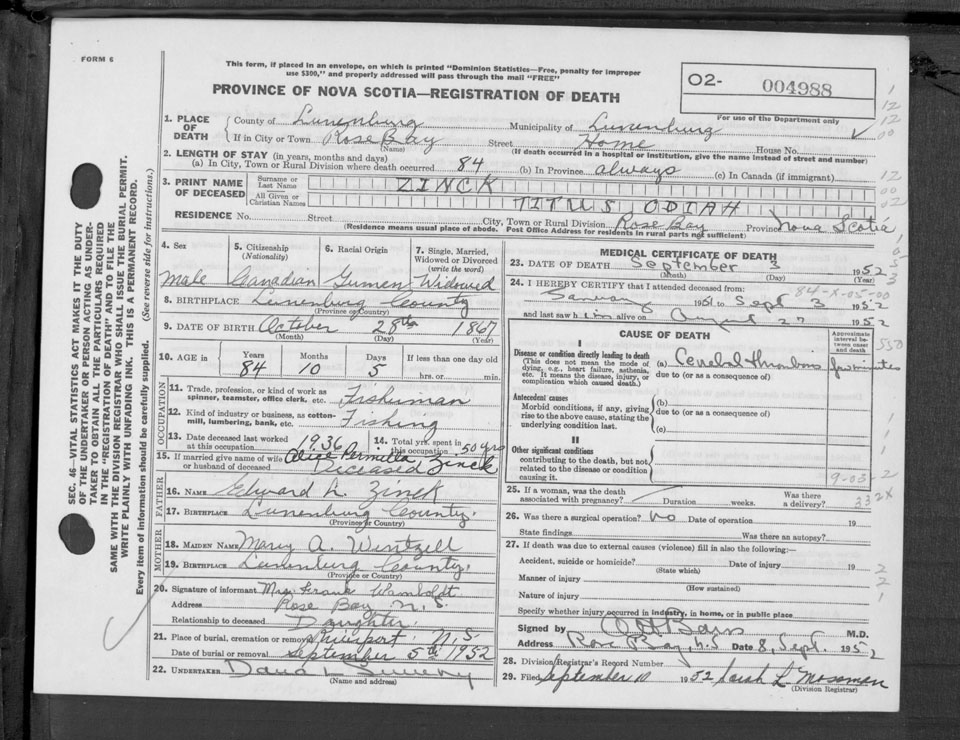 FORM 6
This form, if placed in an envelope, on which is printed "Dominion Statistics—Free, penalty for improper
use $300," and properly addressed will pass through the mail "FREE"
PROVINCE OF NOVA SCOTIA—REGISTRATION OF DEATH
O2- 004988
For use of the Department only
SEC. 46—VITAL STATISTICS ACT MAKES IT THE DUTY
OF THE UNDERTAKER OR PERSON ACTING AS UNDER-
TAKER TO OBTAIN ALL THE PARTICULARS REQUIRED
IN THE "REGISTRATION OF DEATH" AND TO FILE THE
SAME WITH THE DIVISION REGISTRAR WHO SHALL ISSUE THE BURIAL PERMIT.
WRITE PLAINLY WITH UNFADING INK. THIS IS A PERMANENT RECORD.
Every item of information should be carefully supplied. (See reverse side for instructions.)
1. PLACE OF DEATH
County of Lunenburg Municipality of Lunenburg
If in City or Town Rose Bay Street Home House No.
(Name) (If death occurred in a hospital or institution, give the name instead of street and number)
2. LENGTH OF STAY (in years, months and days)
(a) In City, Town or Rural Division where death occurred 84 (b) In Province always (c) In Canada (if immigrant)
3. PRINT NAME OF DECEASED
Surname or Last Name ZINCK
All Given or Christian Names TITUS ODIAH
RESIDENCE No. Street City, Town or Rural Division Rose Bay Province Nova Scotia
(Residence means usual place of abode. Post Office Address for residents in rural parts not sufficient)
4. Sex
Male
5. Citizenship (Nationality)
Canadian
6. Racial Origin
German
7. Single, Married, Widowed or Divorced (write the word)
Widowed
8. BIRTHPLACE Lunenburg County
(Province or Country)
9. DATE OF BIRTH October 28th 1867
(Month) (Day) (Year)
10. AGE in Years Months Days If less than one day old
84 10 5 hrs. or min.
OCCUPATION
11. Trade, profession, or kind of work as spinner, teamster, office clerk, etc. Fisherman
12. Kind of industry or business, as cotton-mill, lumbering, bank, etc. Fishing
13. Date deceased last worked at this occupation 1936 14. Total yrs. spent in this occupation 50 yrs
15. If married give name of wife or husband of deceased Alice Permilla Zinck
Deceased
FATHER
16. NAME Edward A. Zinck
17. BIRTHPLACE Lunenburg County.
(Province or Country)
MOTHER
18. MAIDEN NAME Mary A. Wentzell
19. BIRTHPLACE Lunenburg County.
(Province or Country)
20. Signature of informant Mrs Frank Wamboldt
Address Rose Bay N.S.
Relationship to deceased Daughter.
21. Place of burial, cremation or removal N.S
Date of burial or removal September 5th 1952
22. UNDERTAKER David L
(Name and address)
MEDICAL CERTIFICATE OF DEATH
23. DATE OF DEATH September 3 1952
(Month) (Day) (Year)
24. I HEREBY CERTIFY that I attended deceased from:
84-X-05-00
January 1951 to Sept 3 1952
and last saw him alive on August 27 1952
CAUSE OF DEATH
Approximate interval between onset and death
I
Disease or condition directly leading to death
(This does not mean the mode of dying, e.g., heart failure, asthenia, etc. It means the disease, injury, or complication which caused death.)
(a) Cerebral thrombosis few minutes
due to (or as a consequence of)
Antecedent causes
Morbid conditions, if any, giving rise to the above cause, stating the underlying condition last.
(b)
due to (or as a consequence of)
(c)
II
Other significant conditions
contributing to the death, but not related to the disease or condition causing it.
9-03
25. If a woman, was the death associated with pregnancy? Duration weeks. Was there a delivery?
26. Was there a surgical operation? no Date of operation 19
State findings Was there an autopsy?
27. If death was due to external causes (violence) fill in also the following:—
Accident, suicide or homicide? Date of injury 19
(State which)
Manner of injury
(How sustained)
Nature of injury
Specify whether injury occurred in industry, in home, or in public place
Signed by M.D.
Address Rose Bay N.S Date 8, Sept. 1952
28. Division Registrar's Record Number
29. Filed September 10 1952 Sarah L Mossman
(Division Registrar)